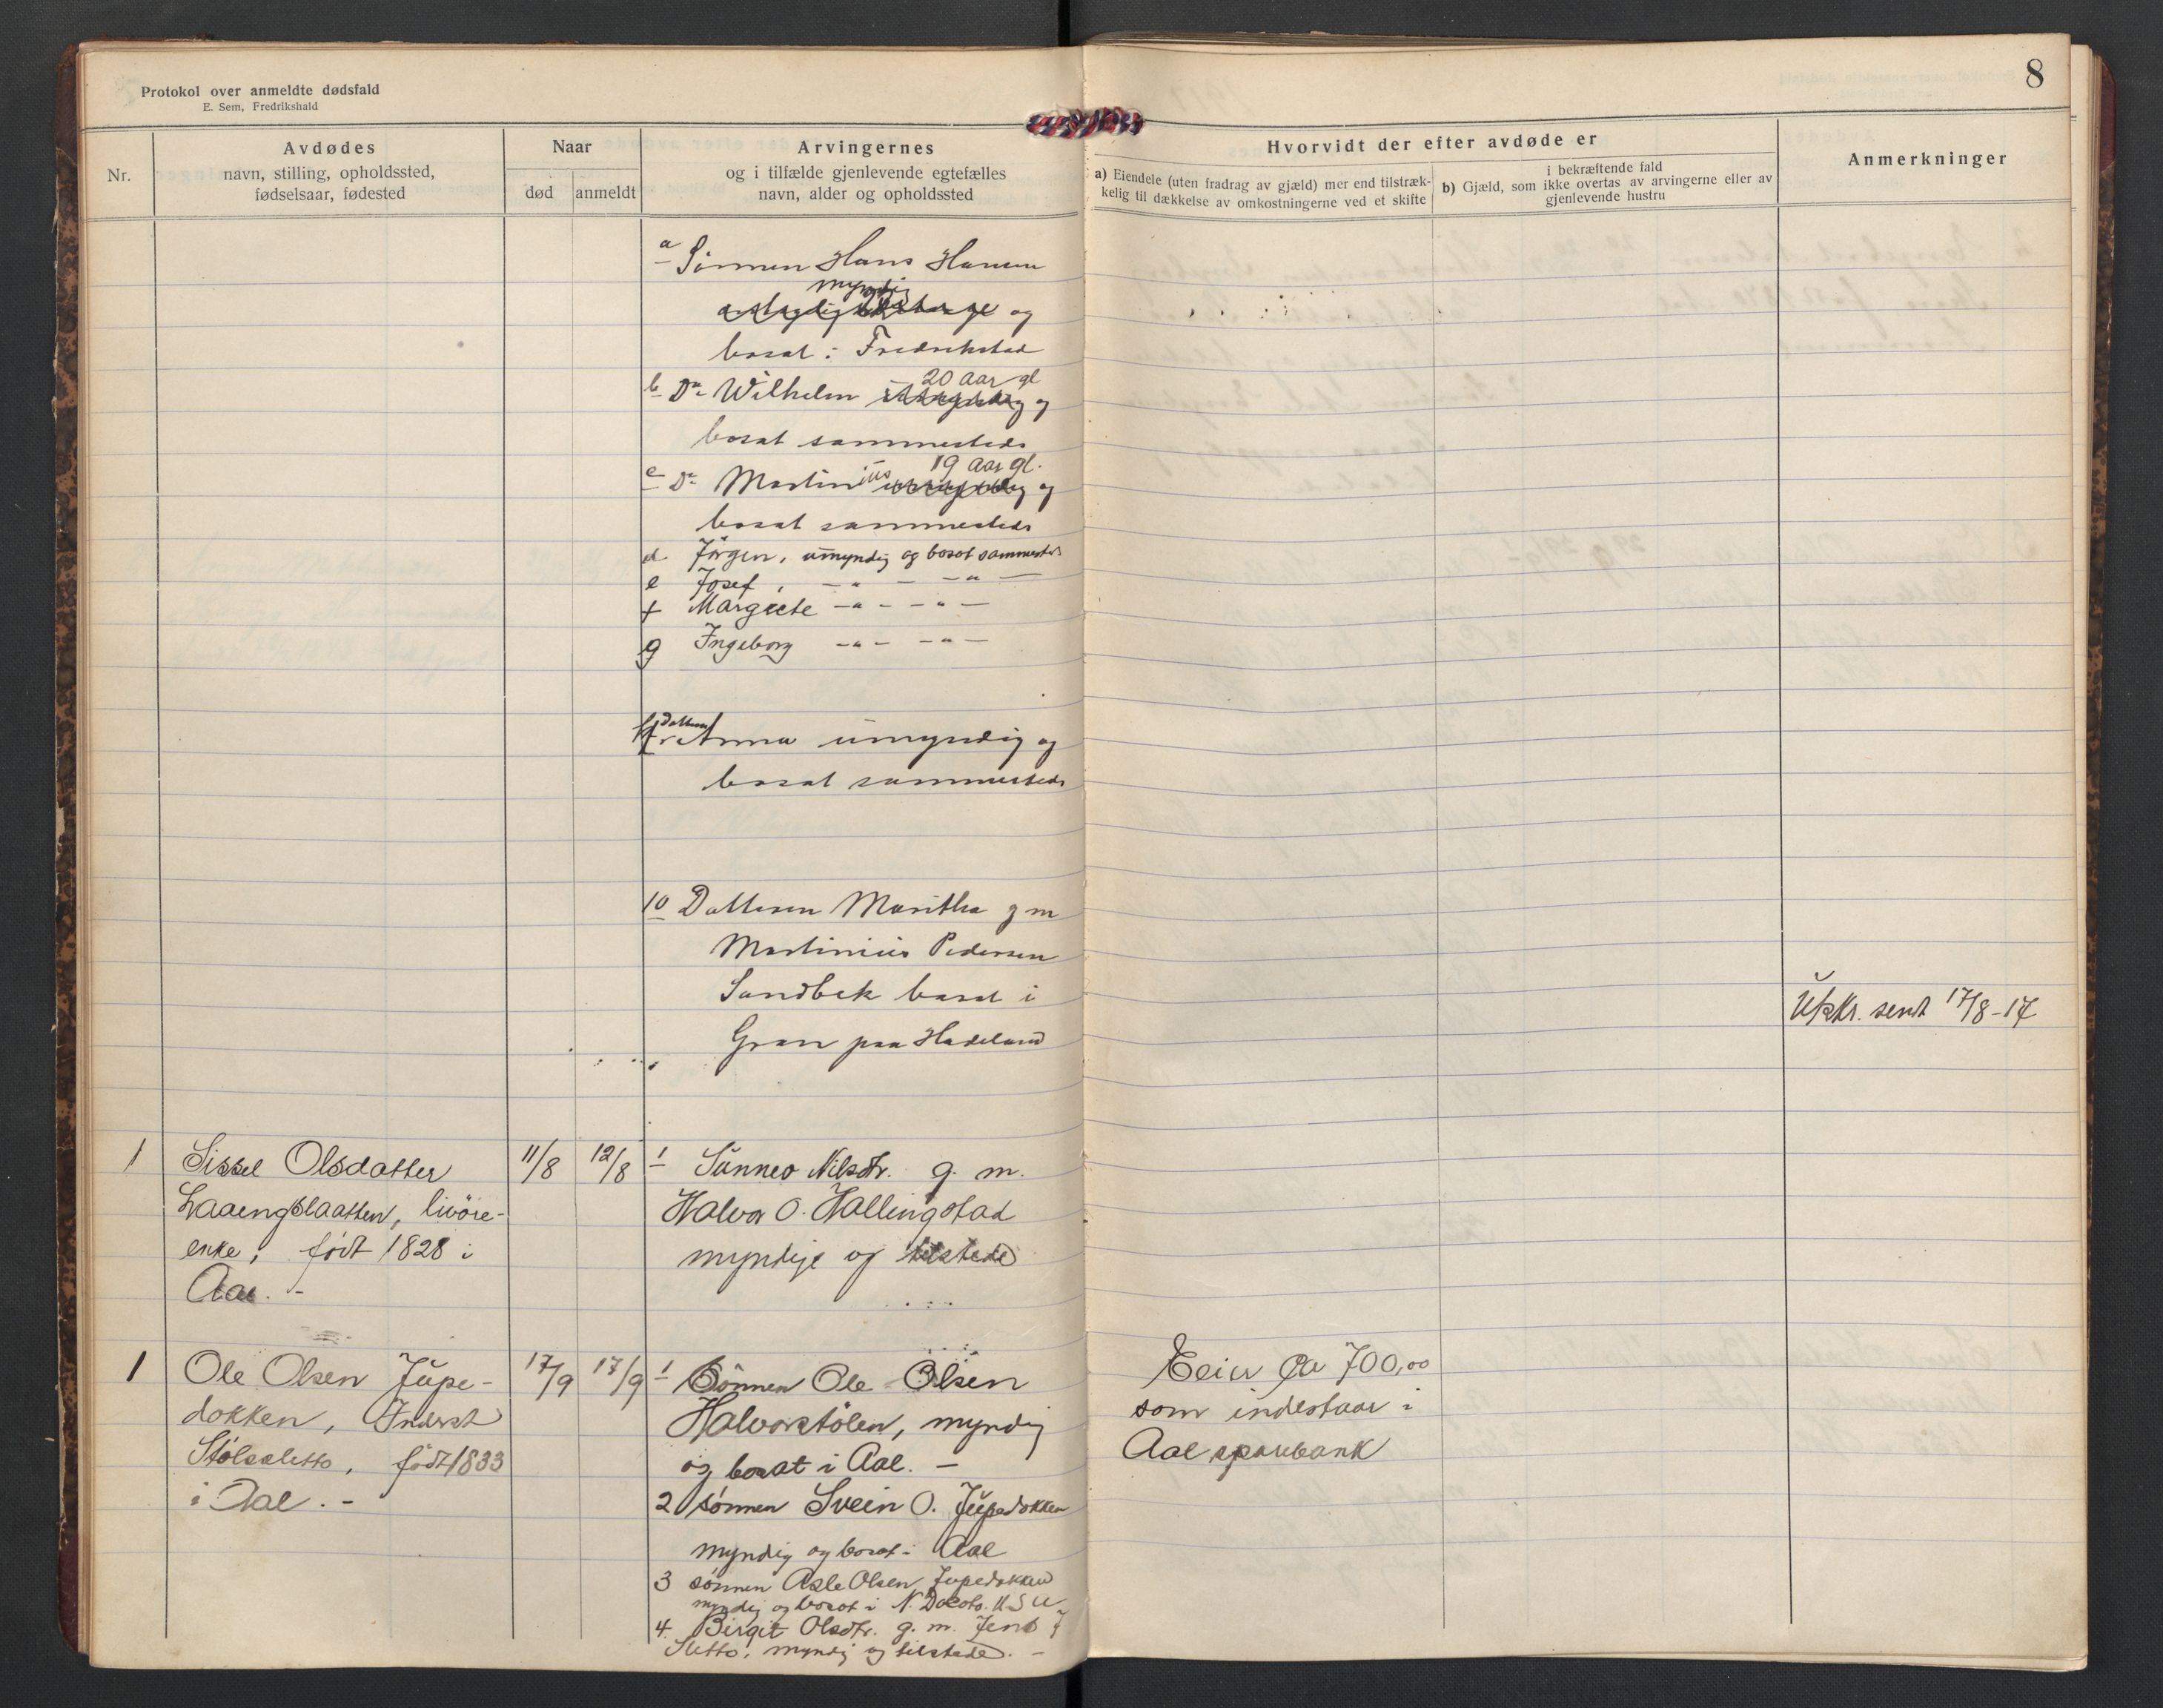 Protokol over anmeldte dødsfald
E. Sem, Fredrikshald
8
Nr.
Avdødes
navn, stilling, opholdssted,
fødselsaar, fødested
Naar
død
anmeldt
Arvingernes
og i tilfælde gjenlevende egtefælles
navn, alder og opholdssted
Hvorvidt der efter avdøde er
a) Eiendele (uten fradrag av gjæld) mer end tilstræk-
kelig til dækkelse av omkostningerne ved et skifte
i bekræftende fald
b) Gjæld, som ikke overtas av arvingerne eller av
gjenlevende hustru
Anmerkninger
a Sönnen Hans Hansen
myndig
og
bosat i Fredrikstad
20 aar gl
b Do Wilhelm og
bosat sammesteds
19 aar gl.
c Do Martinius og
bosat sammesteds
d. Jörgen, umyndig og bosat sammesteds
e Josef, — " — — " —
f Margrete — " — — " —
g Ingeborg — " — — " —
Datteren
Anna umyndig og
bosat sammesteds
10 Datteren Maritha g m
Martinius Pedersen
Sandbek bosat i
Gran paa Hadeland
Utskr. sendt 17/8-17
1 Sissel Olsdatter 11/8 12/8 1 Sünnev Nilsdtr. g. m.
Laaengslaatten, livöre- Halvor O. Hallingstad
enke, født 1828 i myndige og tilstede
Aal. -
1 Ole Olsen Jupe- 17/9 17/9 1 Sönnen Ole Olsen Eeier ca 700,00
dokken, Inderst Halvorstölen, myndig som indestaar i
Stölssletto, född 1833 og bosat i Aal. — Aal sparebank
i Aal. - 2 sönnen Svein O. Jupedokken
myndig og bosat i Aal
3 sönnen Asle Olsen Jupedokken
myndig og bosat i N. Dacota. U S A
4. Birgit Olsdtr. g. m. Jens J
Sletto, myndig og tilstede. —